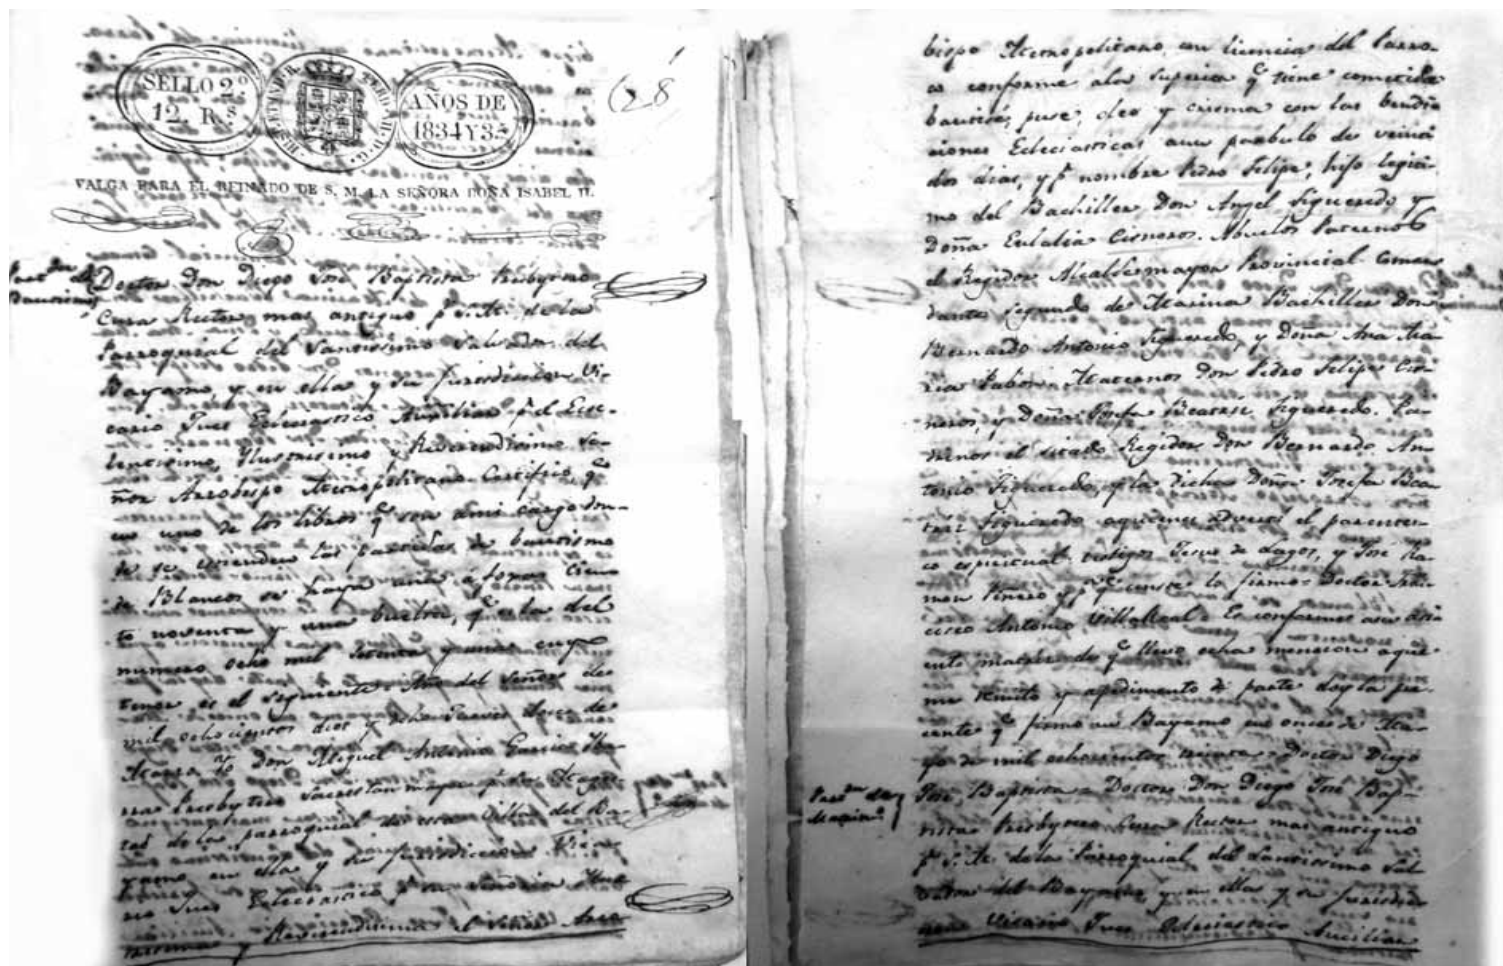 SELLO 2º.
12. Rs.
AÑOS DE
1834 Y 35
VALGA PARA EL REINADO DE S. M. LA SEÑORA DOÑA ISABEL II.
28
Doctor Don Diego José Baptista Presbytero
Cura Rector mas antiguo pr. S. M. de la
Parroquial del Santissimo Salvador del
Bayamo, y en ella y su jurisdiccion Vi-
cario Juez Eclesiastico Auxiliar pr. el Esce-
lentisimo, Ylustrisimo y Reverendisimo Se-
ñor Arzobispo Metropolitano. Certifico, qe.
en uno de los libros qe. son a mi cargo don-
de se estienden las partidas de bautismo
de Blancos se haya una á fojas Cien-
to noventa y una buelta, qe. es la del
numero ocho mil setenta y una cuyo
tenor es el siguiente. Año del Señor de
mil ochocientos diez y ocho Jueves doce de
Marzo Yo Don Miguel Antonio Garcia Yba-
rra Presbytero Sacristan mayor pr. su Mages-
tad de la parroquial de esta Villa del Ba-
yamo en ella y su jurisdiccion Vica-
rio Juez Eclesiastico pr. su Señoria Ylus-
trisima y Reverendisima el Señor Arzo-
bispo Metropolitano, con licencia del Parro-
co conforme a la Superior qe. tiene cometida
bauticé, puse, oleo y crisma con las bendi-
ciones Eclesiasticas a un parbulo de veinti
dos dias, y pr. nombre Pedro Felipe, hijo legiti-
mo del Bachiller Don Angel Figueredo y
Doña Eulalia Cisneros. Abuelos Paternos
el Regidor Alcalde mayor Provincial Coman-
dante segundo de Marina Bachiller Don
Bernardo Antonio Figueredo, y Doña Ana Ma-
ria Pabon. Maternos Don Pedro Felipe Cis-
neros, y Doña Josefa Beatris Figueredo. Pa-
drinos el citado Regidor Don Bernardo An-
tonio Figueredo, y la dicha Doña Josefa Bea-
triz Figueredo a quienes advertí el parentes-
co espiritual. testigos Jesus de Lagos, y José Ra-
mon Piñero y pa. qe. conste lo firmo. Doctor Fran-
cisco Antonio Villalleal. Es conforme a su
matriz de qe. llevo echa mencion a que
me remito y a pedimento de parte doy la pre-
sente qe. firmo en Bayamo en once de Ma-
yo de mil ochocientos treinta. Doctor Diego
José Baptista. Doctor Don Diego José Bap-
tista Presbytero Cura Rector mas antiguo
pr. S. M. de la Parroquial del Santissimo Sal-
vador del Bayamo, y en ella y su jurisdic-
cion Vicario Juez Eclesiastico Auxiliar